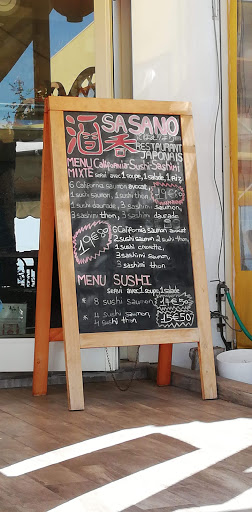 酒香 SASANO
RESTAURANT
JAPONAIS
MENU California Sushi Sashimi
MIXTE servi avec 1 soupe, 1 salade, 1 riz
6 California saumon avocat
1 sushi saumon, 1 sushi thon
1 sushi daurade, 3 sashimi saumon,
3 sashimi thon, 3 sashimi daurade
19€50
6 California saumon avocat
2 sushi saumon 2 sushi thon
1 sushi crevette,
3 sashimi saumon
3 sashimi thon
MENU SUSHI
servi avec 1 soupe, 1 salade
* 8 sushi saumon
* 4 sushi saumon,
4 sushi thon
15€50